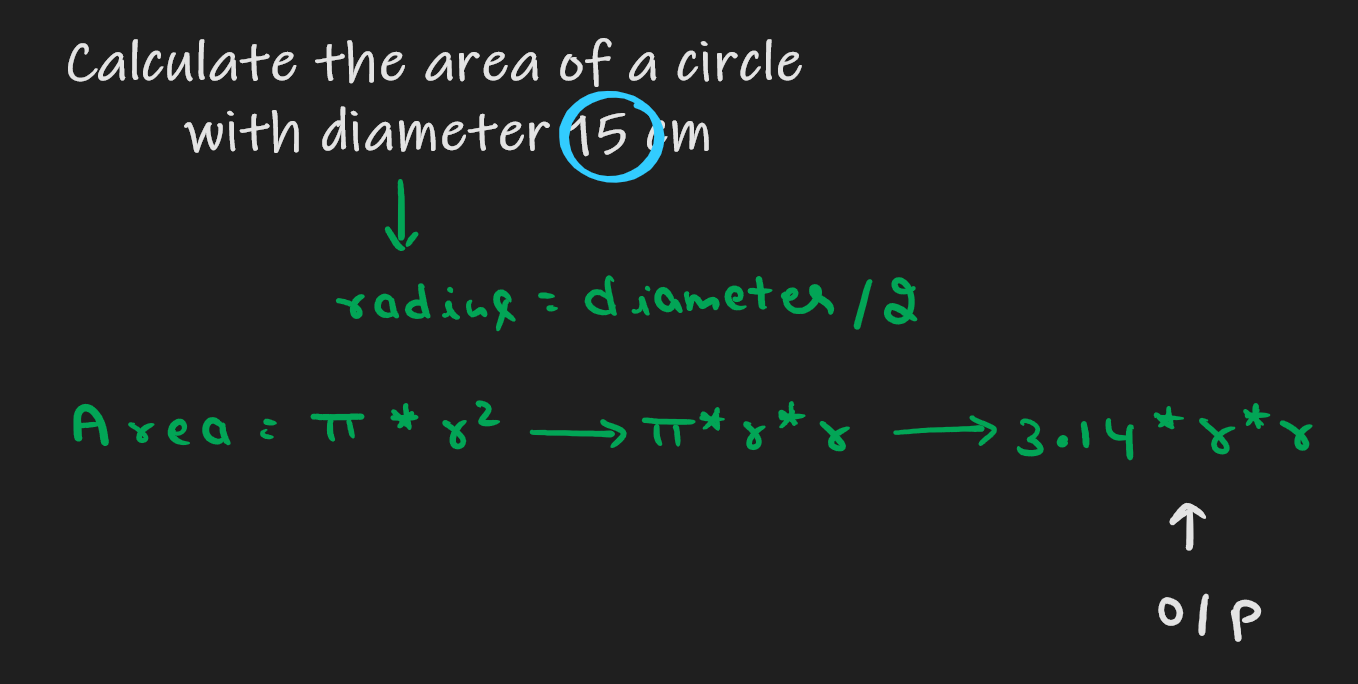 Calculate the area of a circle
with diameter 15 cm
radius = diameter / 2
Area = π * r² → π * r * r → 3.14 * r * r
O/P